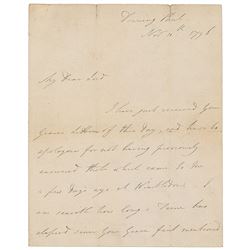 Downing Street
Nov 11th 1796
My Dear Lord
I have just received Your
Grace's letter of this day, and have to
apologize for not having previously
answered that which came to me
a few days ago at
I am
how long a Time has
elapsed since Your Grace first mentioned